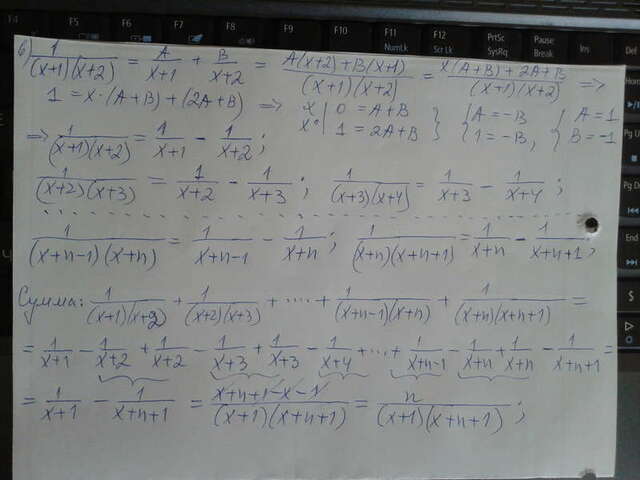 F5 F6 F7 F8 F9 F10 F11 NumLk F12 Scr Lk PrtSc SysRq Pause Break Ins Del
б) 1/((x+1)(x+2)) = A/(x+1) + B/(x+2) = (A(x+2)+B(x+1))/((x+1)(x+2)) = (x(A+B)+2A+B)/((x+1)(x+2)) =>
1 = x·(A+B)+(2A+B) => x | 0 = A+B } { A=-B { A=1
x⁰ | 1 = 2A+B } { 1=-B, { B=-1
=> 1/((x+1)(x+2)) = 1/(x+1) - 1/(x+2);
1/((x+2)(x+3)) = 1/(x+2) - 1/(x+3); 1/((x+3)(x+4)) = 1/(x+3) - 1/(x+4);
1/((x+n-1)(x+n)) = 1/(x+n-1) - 1/(x+n); 1/((x+n)(x+n+1)) = 1/(x+n) - 1/(x+n+1);
Сумма: 1/((x+1)(x+2)) + 1/((x+2)(x+3)) + .... + 1/((x+n-1)(x+n)) + 1/((x+n)(x+n+1)) =
= 1/(x+1) - 1/(x+2) + 1/(x+2) - 1/(x+3) + 1/(x+3) - 1/(x+4) + ... + 1/(x+n-1) - 1/(x+n) + 1/(x+n) - 1/(x+n+1) =
= 1/(x+1) - 1/(x+n+1) = (x+n+1-x-1)/((x+1)(x+n+1)) = n/((x+1)(x+n+1));
Pg U
Pg D
End